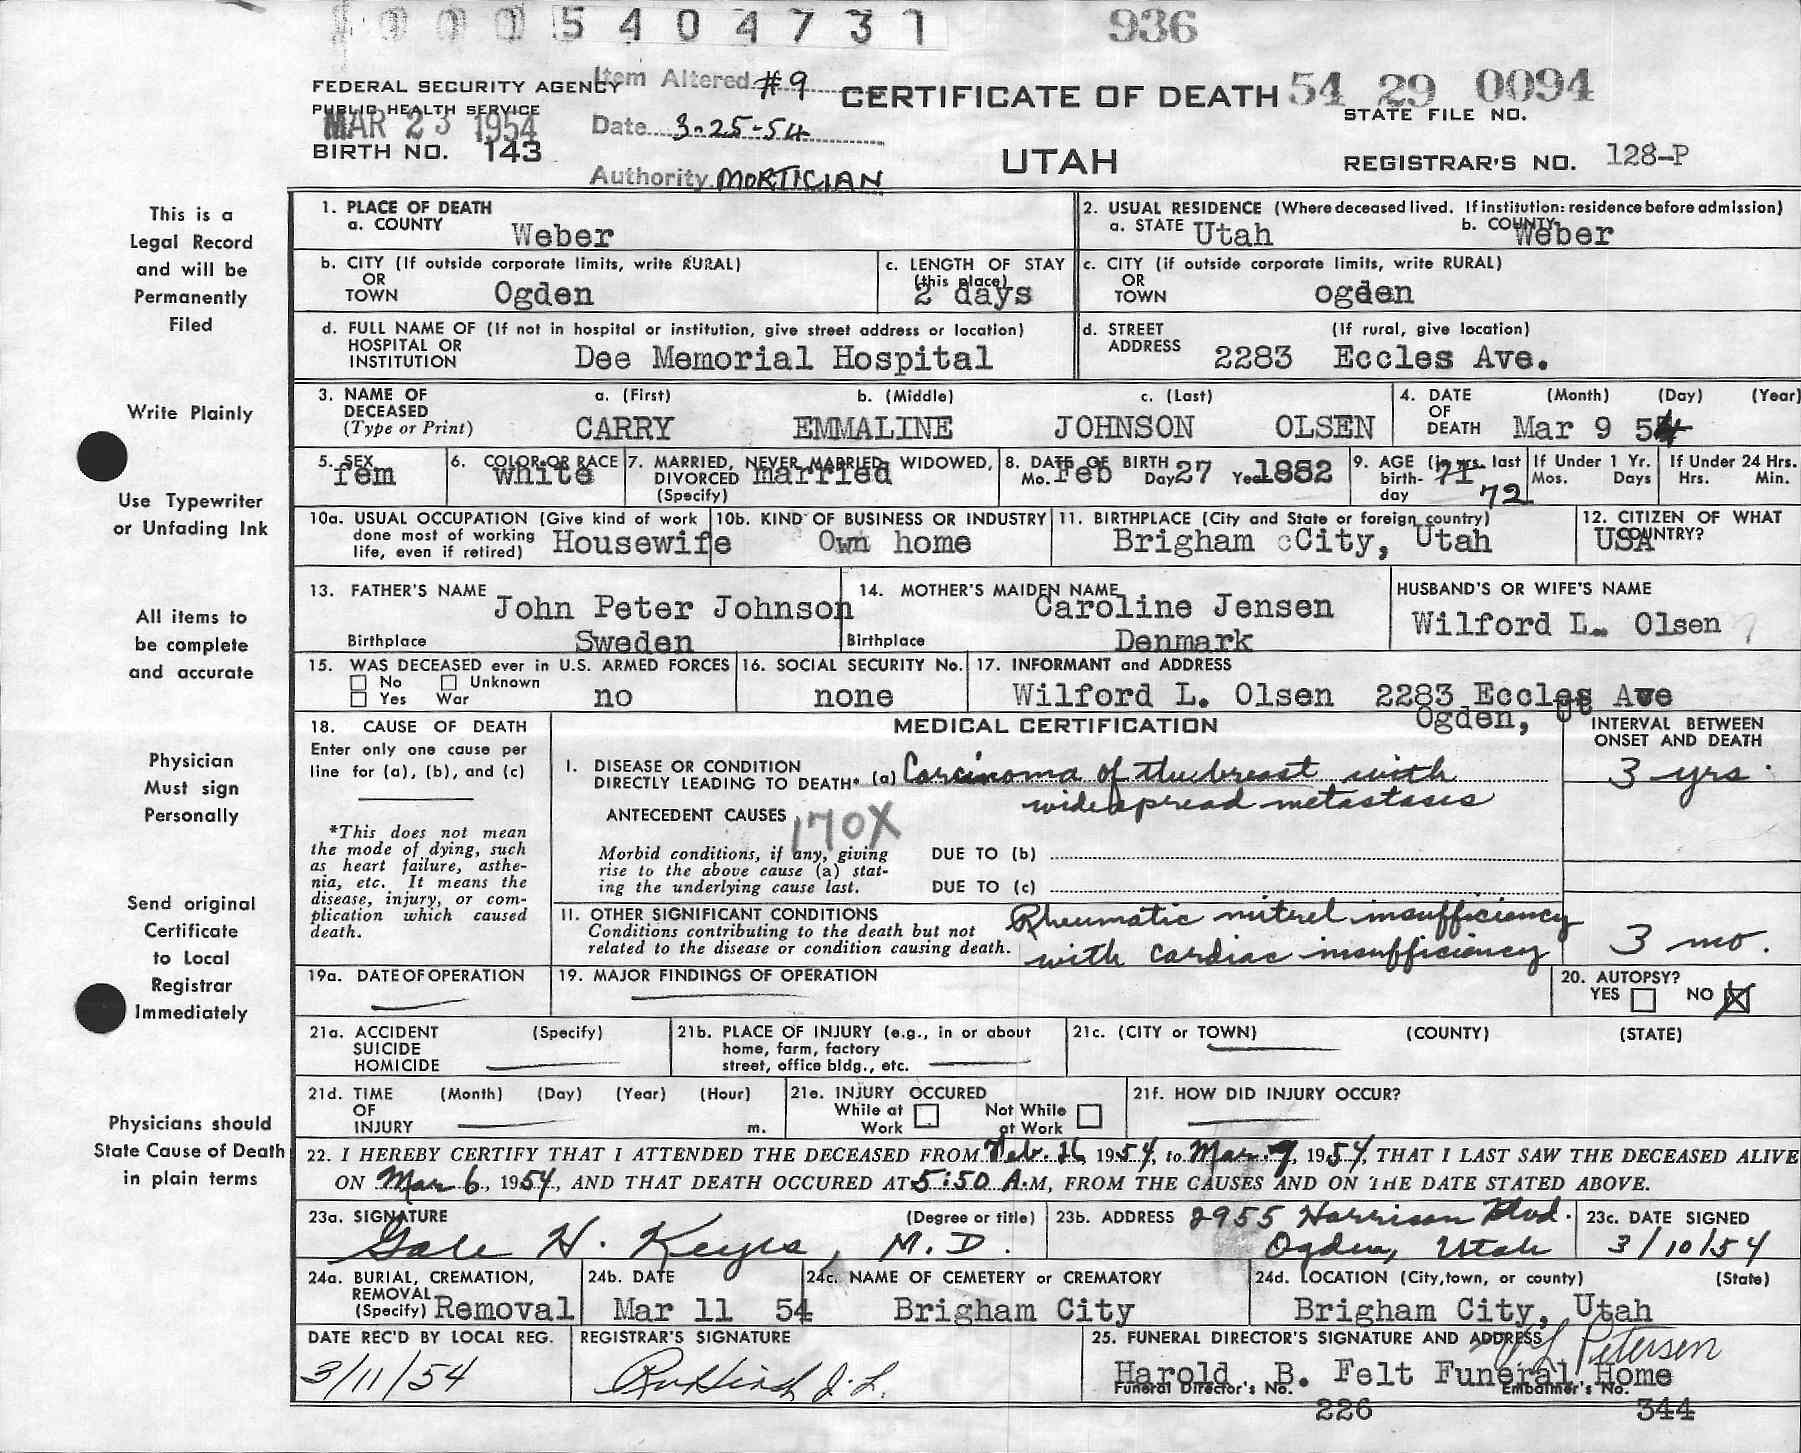 0005404731 936
FEDERAL SECURITY AGENCY Item Altered #9 CERTIFICATE OF DEATH 54 29 0094
PUBLIC HEALTH SERVICE STATE FILE NO.
MAR 23 1954 Date 3-25-54
BIRTH NO. 143 UTAH REGISTRAR'S NO. 128-P
Authority MORTICIAN
This is a
Legal Record
and will be
Permanently
Filed
Write Plainly
Use Typewriter
or Unfading Ink
All items to
be complete
and accurate
Physician
Must sign
Personally
Send original
Certificate
to Local
Registrar
Immediately
Physicians should
State Cause of Death
in plain terms
1. PLACE OF DEATH
a. COUNTY Weber
2. USUAL RESIDENCE (Where deceased lived. If institution: residence before admission)
a. STATE Utah b. COUNTY Weber
b. CITY (If outside corporate limits, write RURAL)
OR
TOWN Ogden
c. LENGTH OF STAY
(this place)
2 days
c. CITY (if outside corporate limits, write RURAL)
OR
TOWN ogden
d. FULL NAME OF (If not in hospital or institution, give street address or location)
HOSPITAL OR
INSTITUTION Dee Memorial Hospital
d. STREET (If rural, give location)
ADDRESS 2283 Eccles Ave.
3. NAME OF a. (First) b. (Middle) c. (Last)
DECEASED
(Type or Print) CARRY EMMALINE JOHNSON OLSEN
4. DATE (Month) (Day) (Year)
OF
DEATH Mar 9 54
5. SEX
fem
6. COLOR OR RACE
white
7. MARRIED, NEVER MARRIED, WIDOWED,
DIVORCED married
(Specify)
8. DATE OF BIRTH
Mo. Feb Day 27 Year 1882
9. AGE (in yrs. last
birth- 71
day 72
If Under 1 Yr.
Mos. Days
If Under 24 Hrs.
Hrs. Min.
10a. USUAL OCCUPATION (Give kind of work
done most of working
life, even if retired) Housewife
10b. KIND OF BUSINESS OR INDUSTRY
Own home
11. BIRTHPLACE (City and State or foreign country)
Brigham cCity, Utah
12. CITIZEN OF WHAT
COUNTRY?
USA
13. FATHER'S NAME John Peter Johnson
Birthplace Sweden
14. MOTHER'S MAIDEN NAME Caroline Jensen
Birthplace Denmark
HUSBAND'S OR WIFE'S NAME
Wilford L. Olsen
15. WAS DECEASED ever in U.S. ARMED FORCES
No Unknown
Yes War no
16. SOCIAL SECURITY No.
none
17. INFORMANT and ADDRESS
Wilford L. Olsen 2283 Eccles Ave
Ogden, Ut
18. CAUSE OF DEATH
Enter only one cause per
line for (a), (b), and (c)
*This does not mean
the mode of dying, such
as heart failure, asthe-
nia, etc. It means the
disease, injury, or com-
plication which caused
death.
MEDICAL CERTIFICATION
INTERVAL BETWEEN
ONSET AND DEATH
I. DISEASE OR CONDITION
DIRECTLY LEADING TO DEATH* (a) Carcinoma of the breast with 3 yrs.
widespread metastases
ANTECEDENT CAUSES 170X
Morbid conditions, if any, giving
rise to the above cause (a) stat-
ing the underlying cause last.
DUE TO (b)
DUE TO (c)
II. OTHER SIGNIFICANT CONDITIONS
Conditions contributing to the death but not
related to the disease or condition causing death.
Rheumatic mitrel insufficiency
with cardiac insufficiency 3 mo.
19a. DATE OF OPERATION
19. MAJOR FINDINGS OF OPERATION
20. AUTOPSY?
YES NO X
21a. ACCIDENT (Specify)
SUICIDE
HOMICIDE
21b. PLACE OF INJURY (e.g., in or about
home, farm, factory
street, office bldg., etc.
21c. (CITY or TOWN) (COUNTY) (STATE)
21d. TIME (Month) (Day) (Year) (Hour)
OF
INJURY m.
21e. INJURY OCCURED
While at Work Not While at Work
21f. HOW DID INJURY OCCUR?
22. I HEREBY CERTIFY THAT I ATTENDED THE DECEASED FROM Feb. 26, 1954, to Mar. 9, 1954, THAT I LAST SAW THE DECEASED ALIVE
ON Mar 6, 1954, AND THAT DEATH OCCURED AT 5:50 A.M, FROM THE CAUSES AND ON THE DATE STATED ABOVE.
23a. SIGNATURE (Degree or title)
Gale H. Keyes, M.D.
23b. ADDRESS 2955 Harrison Blvd.
Ogden, Utah
23c. DATE SIGNED
3/10/54
24a. BURIAL, CREMATION,
REMOVAL
(Specify) Removal
24b. DATE
Mar 11 54
24c. NAME OF CEMETERY or CREMATORY
Brigham City
24d. LOCATION (City, town, or county) (State)
Brigham City, Utah
DATE REC'D BY LOCAL REG.
3/11/54
REGISTRAR'S SIGNATURE
25. FUNERAL DIRECTOR'S SIGNATURE AND ADDRESS
Petersen
Harold B. Felt Funeral Home
Funeral Director's No. Embalmer's No.
226 344